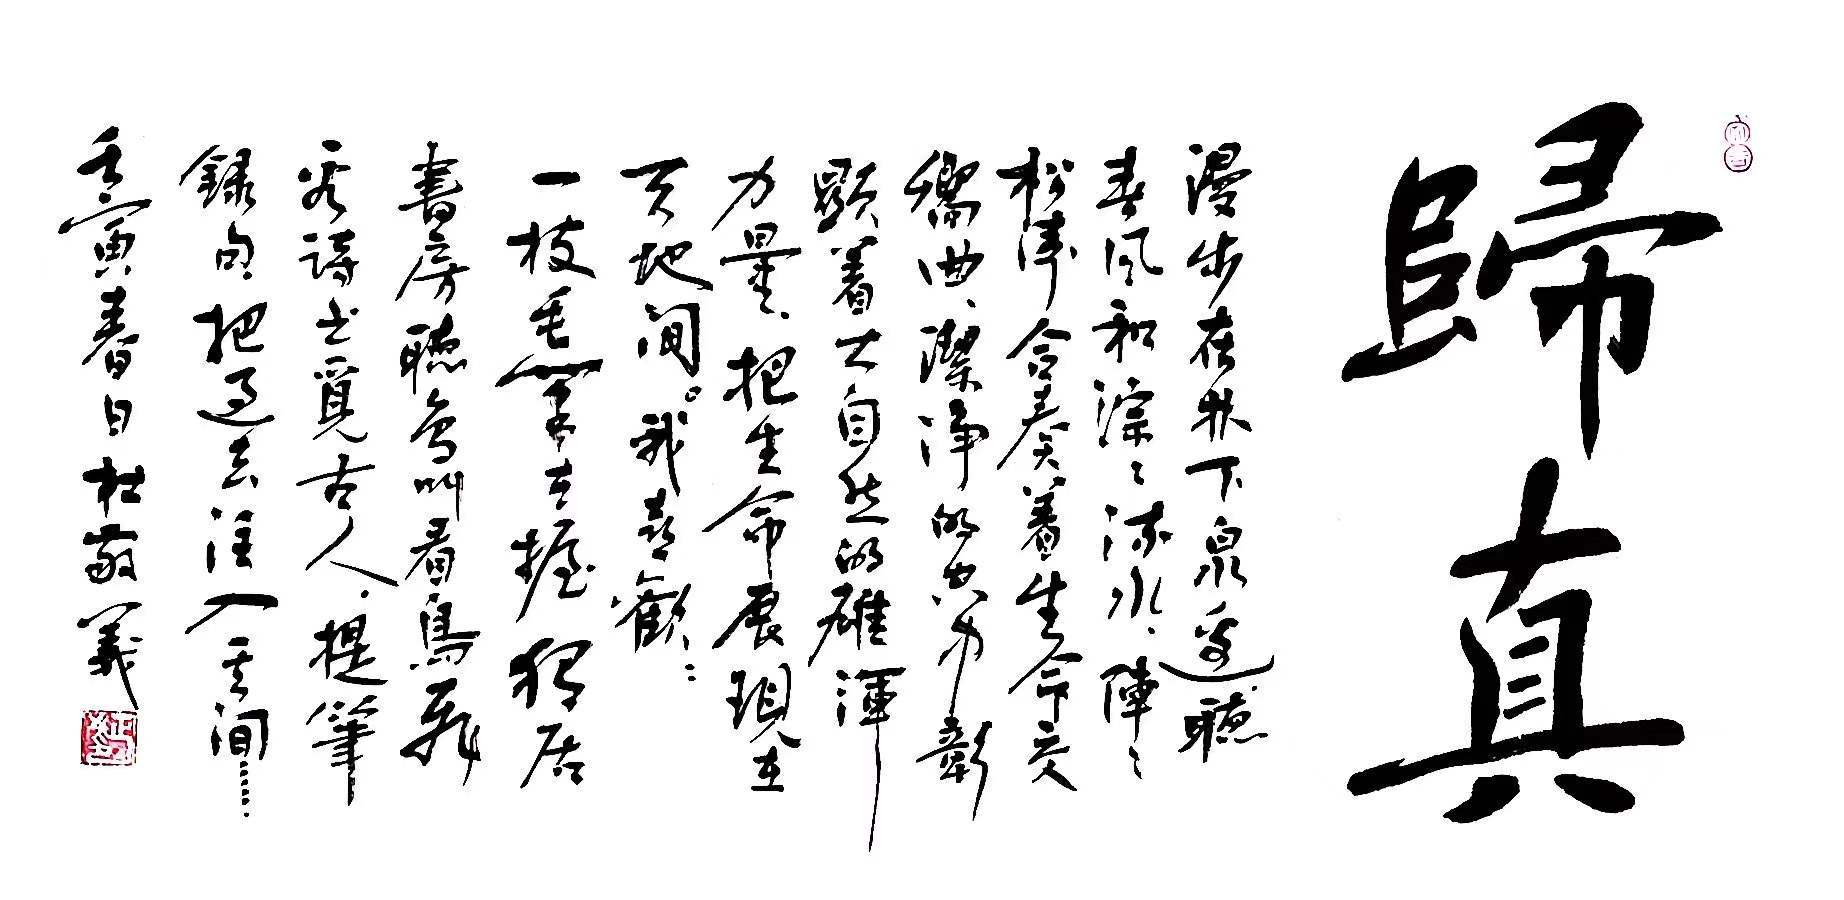 歸真
漫步在林下泉邊聽
春風和淙々流水、陣々
松濤合奏着生命交
響曲、潔淨的空力彰
顯着大自然的雄渾
力量、把生命展現在
天地間。我喜歡：
一枝毛筆在握獨居
書房聽鳥叫看鳥飛
誦詩書覓古人、提筆
録句把過去注入其間……
壬寅春日杜敬義